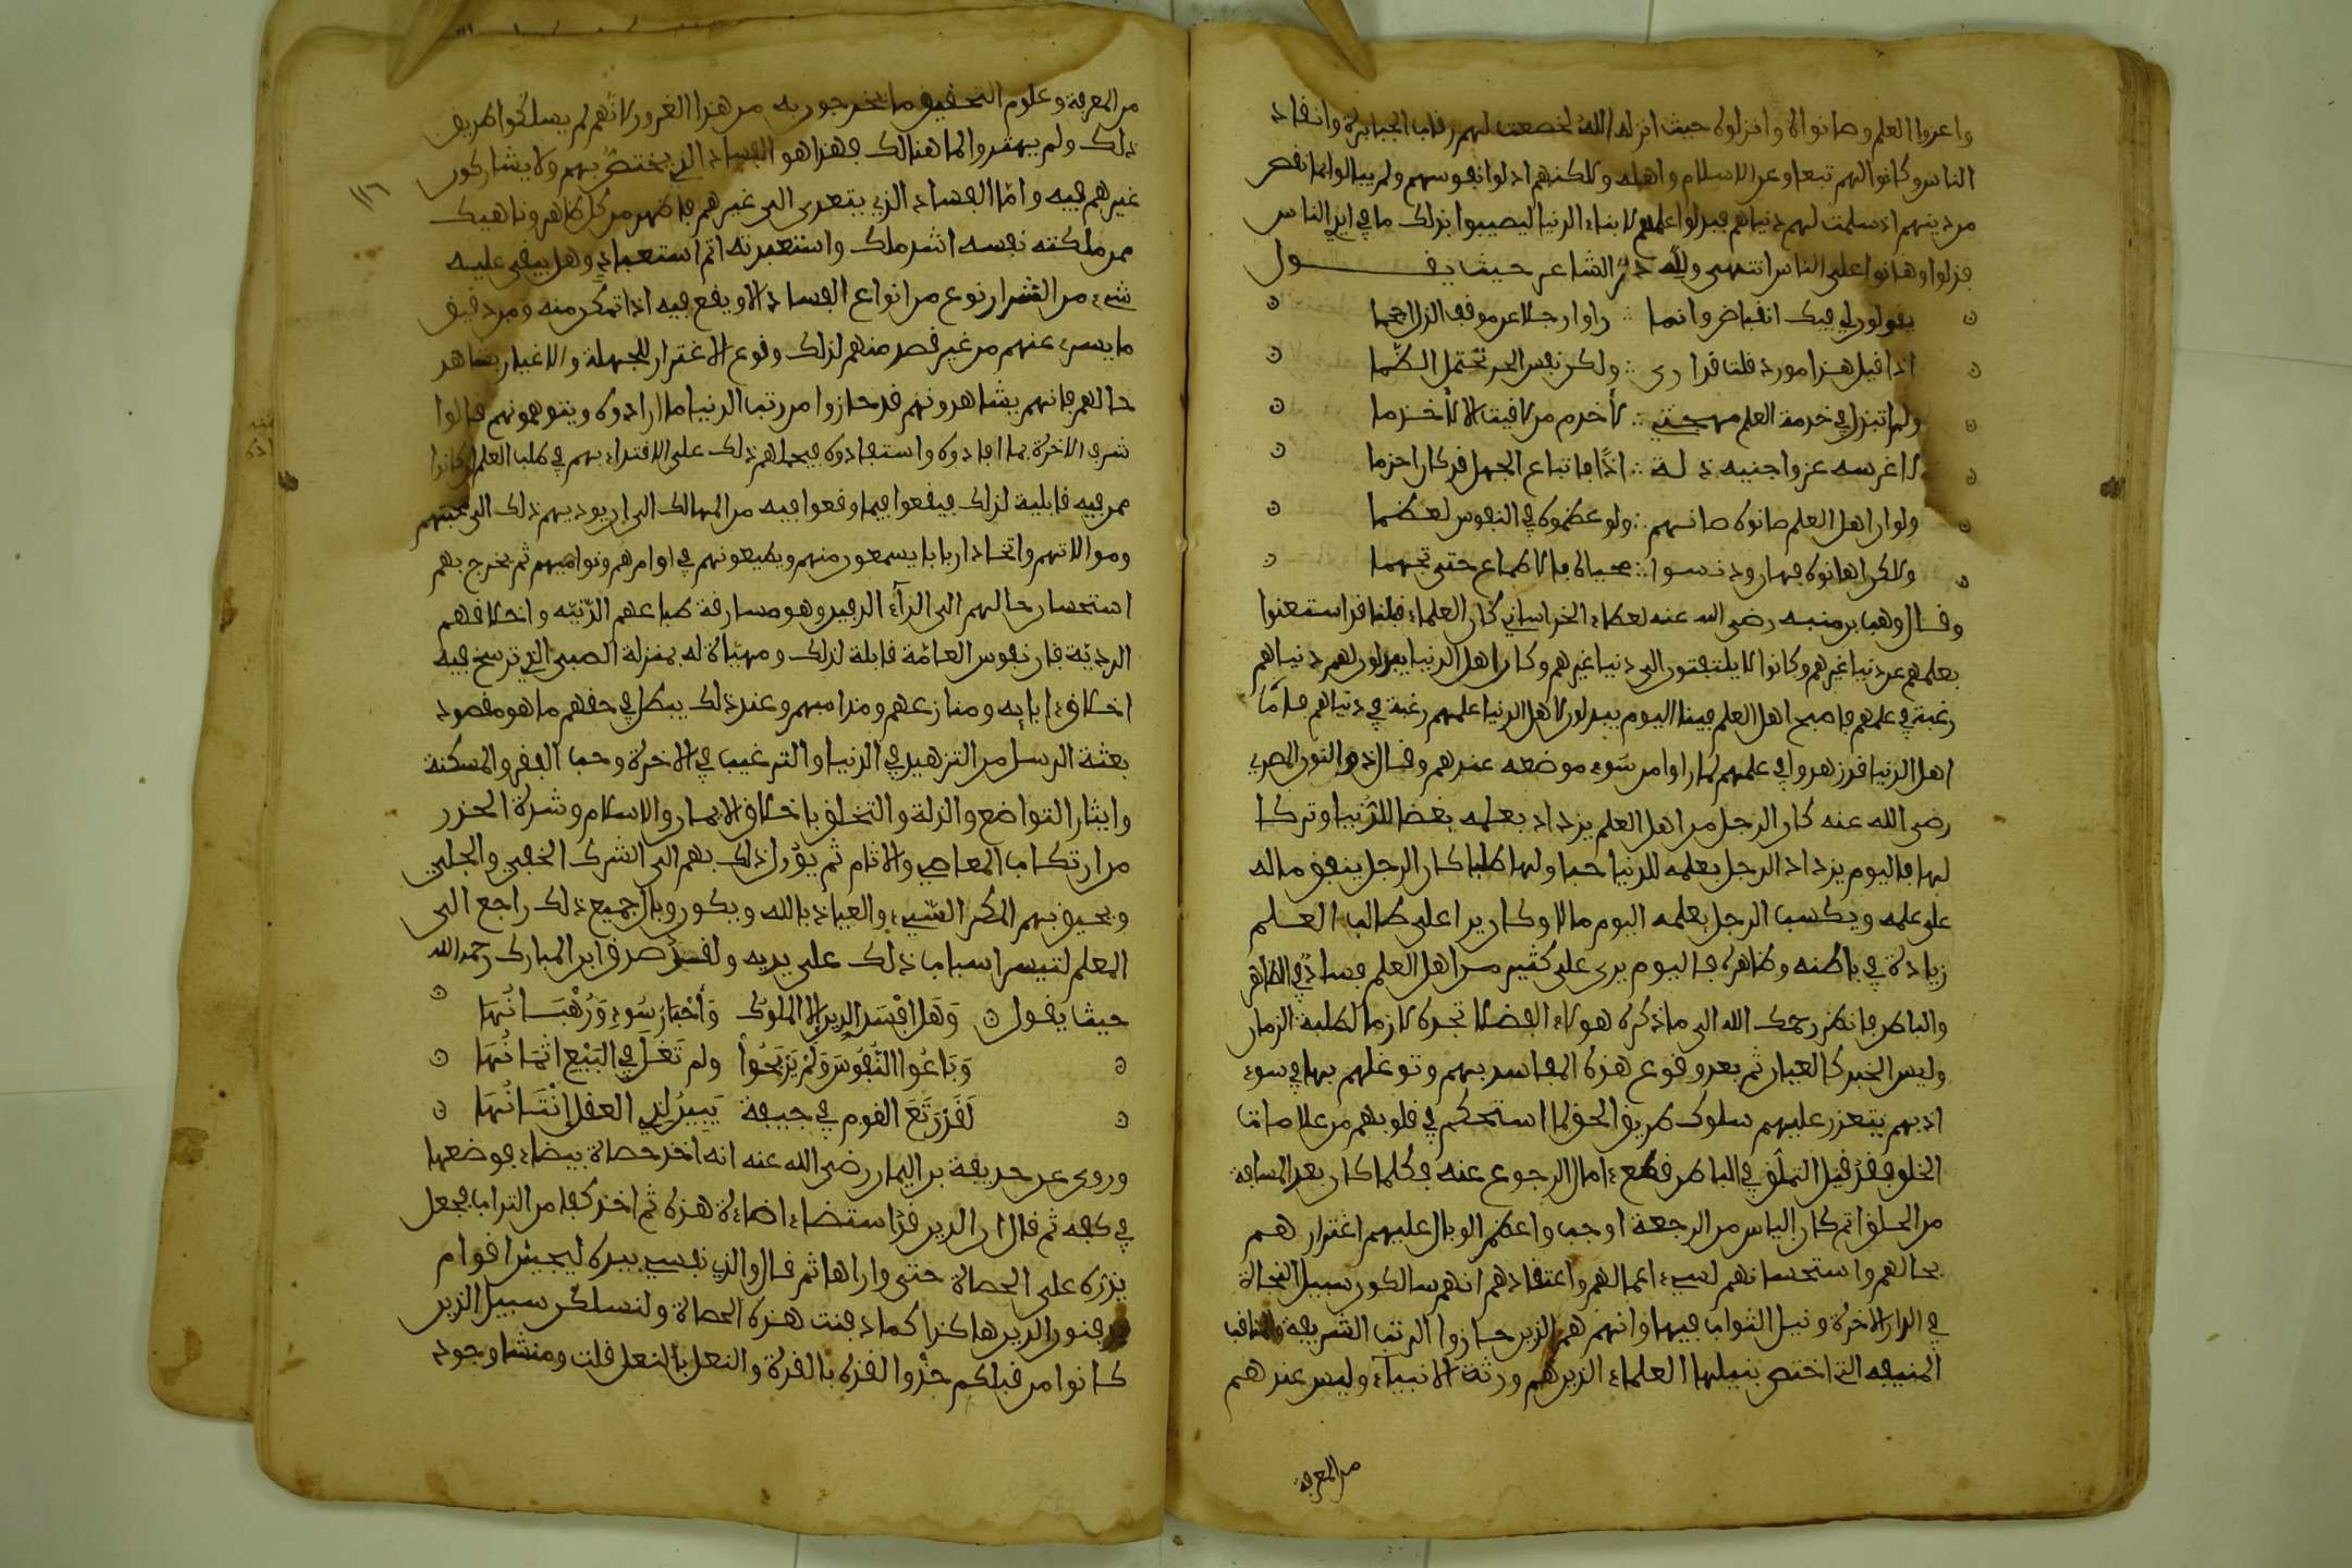 واعزوا العلم وصانوه وانزلوه حيث انزله الله لخضعت لهم رقاب الجبابرة وانقاد
الناس وكانوا لهم تبعا وعز الاسلام واهله ولكنهم اذلوا نفوسهم ولم يبالوا بما نقص
من دينهم اذ سلمت لهم دنياهم فبذلوا علمهم لابناء الدنيا ليصيبوا بذلك ما في ايدي الناس
فذلوا وهانوا على الناس انتهى ولله در الشاعر حيث يقـــــول
يقولون لي فيك انقباض وانما ∴ راوا رجلا عن موقف الذل احجما
اذا قيل هذا مورد قلت قد ارى ∴ ولكن نفس الحر تحتمل الظما
ولم ابتذل في خدمة العلم مهجتي ∴ لأخدم من لاقيت الا لأخدما
ءاغرسه عزا واجنيه ذلة ∴ اذًا فاتباع الجهل قد كان احزما
ولو ان اهل العلم صانوه صانهم ∴ ولو عظموه في النفوس لعظما
ولاكن اهانوه فهان ودنسوا ∴ محياه بالاطماع حتى تجهما
وقال وهب بن منبه رضي الله عنه لعطاء الخراساني كان العلماء قبلنا قد استغنوا
بعلمهم عن دنيا غيرهم وكانوا لا يلتفتون الى دنيا غيرهم وكان اهل الدنيا يبذلون لهم دنياهم
رغبة في علمهم فاصبح اهل العلم فينا اليوم يبذلون لاهل الدنيا علمهم رغبة في دنياهم فامّا
اهل الدنيا فزهدوا في علمهم لما راوا من سوء موضعه عندهم وقال ذو النون المصري
رضي الله عنه كان الرجل من اهل العلم يزداد بعلمه بغضا للدنيا وتركا
لها فاليوم يزداد الرجل بعلمه للدنيا حبا ولها طلبا كان الرجل ينفق ماله
على علمه ويكسب الرجل بعلمه اليوم مالا وكان يرا على طالب العلم
زيادة في باطنه وظاهره فاليوم يرى على كثير من اهل العلم فساد في الظاهر
والباطن فانظر رحمك الله الى ما ذكره هولاء الفضلا تجده لازما لطلبة الزمان
وليس الخبر كالعيان ثم بعد وقوع هذه المفاسد بهم وتوغلهم بها في سوء
ادبهم يتعذر عليهم سلوك طريق الحق لما استحكم في قلوبهم من علامات
الخلق فقد قيل التملق في الباطن قطع ءامال الرجوع عنه فكلما كان بعد المسافة
من الحلق اتم كان الياس من الرجعة اوجب واعظم الوبال عليهم اغترارهم
بحالهم واستحسانهم لسيء اعمالهم واعتقادهم انهم سالكون سبيل النجاة
في الدار الاخرة ونيل الثواب فيها وانهم هم الذين حازوا الرتب الشريفة والمناقب
المنيفه التي اختص بنيلها العلماء الذين هم ورثة الانبياء وليس عندهم
من المعرفة
من المعرفة وعلوم التحقيق ما يخرجون به من هذا الغرور لأنهم لم يسلكوا طريق
ذلك ولم يهتدوا لما هنالك فهذا هو الفساد الذي يختص بهم ولا يشاركون
١١٦
غيرهم فيه وامّا الفساد الذي يتعدى الى غيرهم فاظهر من كل ظاهر وناهيك
ممن ملكته نفسه اشد ملك واستعبدته اتم استعباد وهل يبقى عليه
شيء من الشر او نوع من انواع الفساد الا ويقع فيه اذا تمكن منه ومن دقيق
ما يسري عنهم من غير قصد منهم لذلك وقوع الاغترار للجهلة والاغبياء بشاهد
حالهم فانهم يشاهدونهم قد حازوا من رتب الدنيا ما ارادوه ويتوهمونهم قد نالوا
شرف الاخرة بما افادوه واستفادوه فيحملهم ذلك على الاقتداء بهم في طلب العلم ان كانوا
ممن فيه قابلية لذلك فيقعوا فيما وقعوا فيه من المهالك الى ان يوديهم ذلك الى محبتهم
وموالاتهم واتخاذ اربابا يسمعون منهم ويطيعونهم في اوامرهم ونواهيهم ثم يخرج بهم
استحسان حالهم الى الدآء الدفين وهو مسارقة طباعهم الدّنيّه واخلاقهم
الرديّة فان نفوس العامّة قابلة لذلك ومهيّاة له بمنزلة الصبي الذي ترسخ فيه
اخلاق ءابايه ومنازعهم ومذاهبهم وعند ذلك يبطل في حقهم ما هو مقصود
بعثة الرسل من التزهيد في الدنيا والترغيب في الاخرة وحب الفقر والمسكنة
وايثار التواضع والذلة والتخلق باخلاق الايمان والاسلام وشدة الحذر
من ارتكاب المعاصي والاثام ثم يؤول ذلك بهم الى الشرك الخفي والجلي
ويحيق بهم المكر السّيء والعياذ بالله ويكون وبال جميع ذلك راجع الى
المعلم لتيسر اسباب ذلك على يديه ولقد صدق ابن المبارك رحمه الله
حيث يقول وَهَل افْسَد الدين الا الملوك وَأحْبَارُ سُوءٍ وَرُهْبَانُهَا
وَبَاعُوا النُّفُوسَ وَلَمْ يَرْبَحُوا ولم تَغْلُ في البَيْع اثمَانُهَا
لَقَدْ رَتَعَ القوم في جيفة يَبِينُ لِذِي العقل إنْتَانُهَا
وروى عن حذيفة بن اليمان رضي الله عنه انه اخذ حصاة بيضاء فوضعها
في كفه ثم قال ان الدين قد استضاء اضاءة هذه ثم اخذ كفا من التراب فجعل
يذره على الحصاة حتى واراها ثم قال والذي نفسي بيده ليجيئن اقوام
يدفنون الدين هاكذا كما دفنت هذه الحصاة ولنسلكن سبيل الذين
كانوا من قبلكم حذْوا القذة بالقذة والنعل بالنعل قلت ومنشا وجود